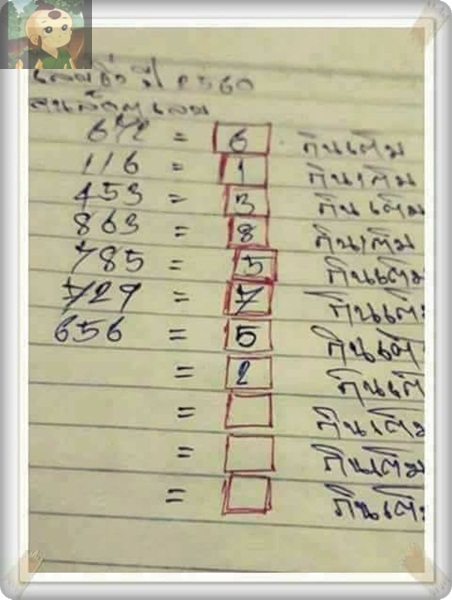 ปี 2560
672 = 6 กินเต็ม
116 = 1 กินเต็ม
453 = 3 กินเต็ม
863 = 8 กินเต็ม
785 = 5 กินเต็ม
729 = 7 กินเต็
656 = 5 กินเต็
= 2 กินเต็
= กินเต็ม
= กินเต็ม
= กินเต็ม